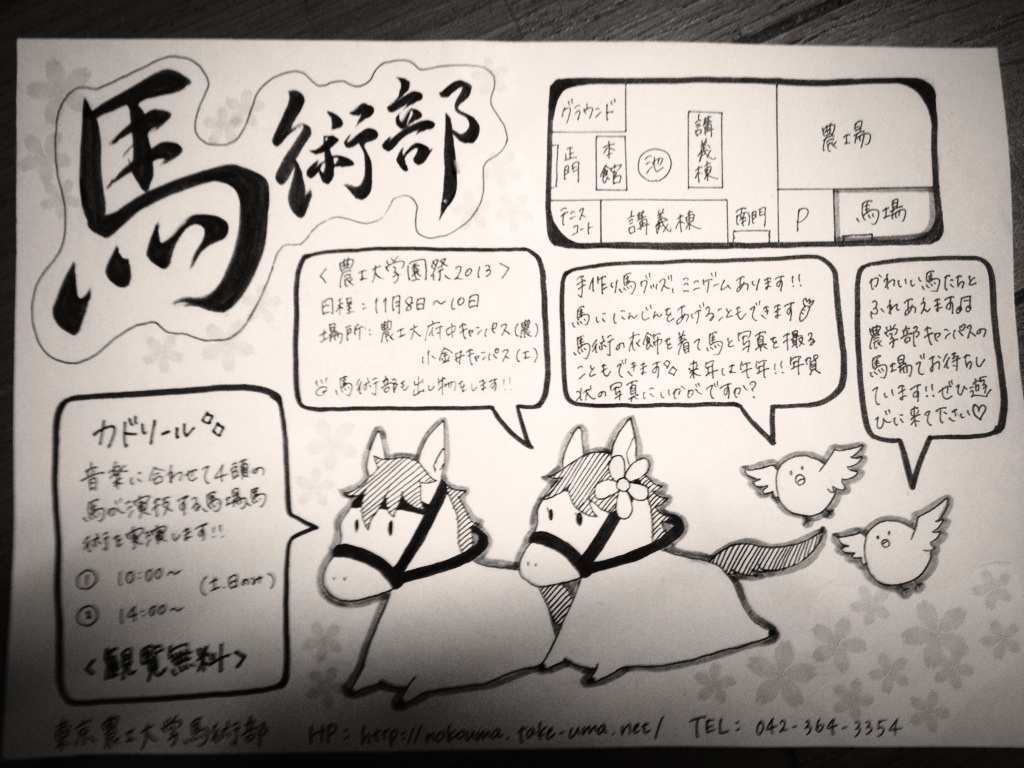 馬術部
グラウンド
正門
本館
池
講義棟
農場
テニスコート
講義棟
南門
P
馬場
〈農工大学園祭2013〉
日程：11月8日〜10日
場所：農工大府中キャンパス(農)
小金井キャンパス(工)
馬術部も出し物をします!!
手作り馬グッズ、ミニゲームあります!!
馬ににんじんをあげることもできます
馬術の衣飾を着て馬と写真を撮る
こともできます。来年は午年!!年賀
状の写真にいかがですか？
かわいい馬たちと
ふれあえます♫
農学部キャンパスの
馬場でお待ちし
ています!!ぜひ遊
びに来て下さい♡
カドリール
音楽に合わせて4頭の
馬が演技する馬場馬
術を実演します!!
① 10:00〜
(土、日のみ)
② 14:00〜
〈観覧無料〉
東京農工大学馬術部 HP：http://nokouma.take-uma.net/ TEL：042-364-3354